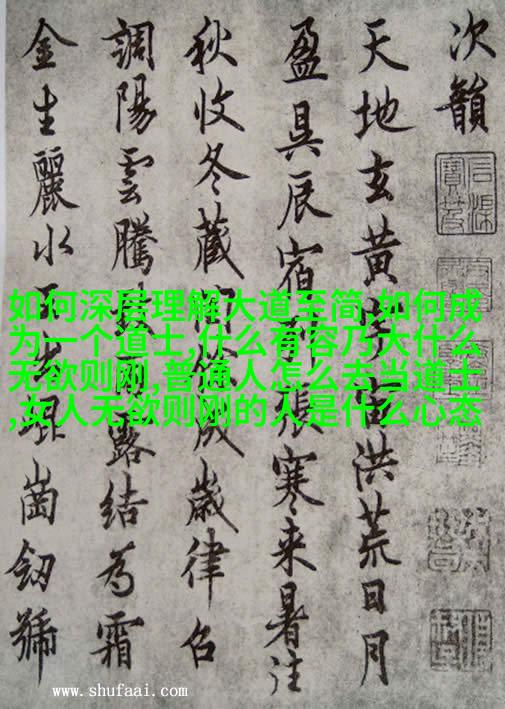 次韻
天地玄黄洪荒日月
盈昃辰宿張寒来暑往
秋收冬藏成歲律召
調陽雲騰露結為霜
金生麗水崗劒號
如何深层理解大道至简,如何成
为一个道士,什么有容乃大什么
无欲则刚,普通人怎么去当道士
,女人无欲则刚的人是什么心态
www.shufaai.com